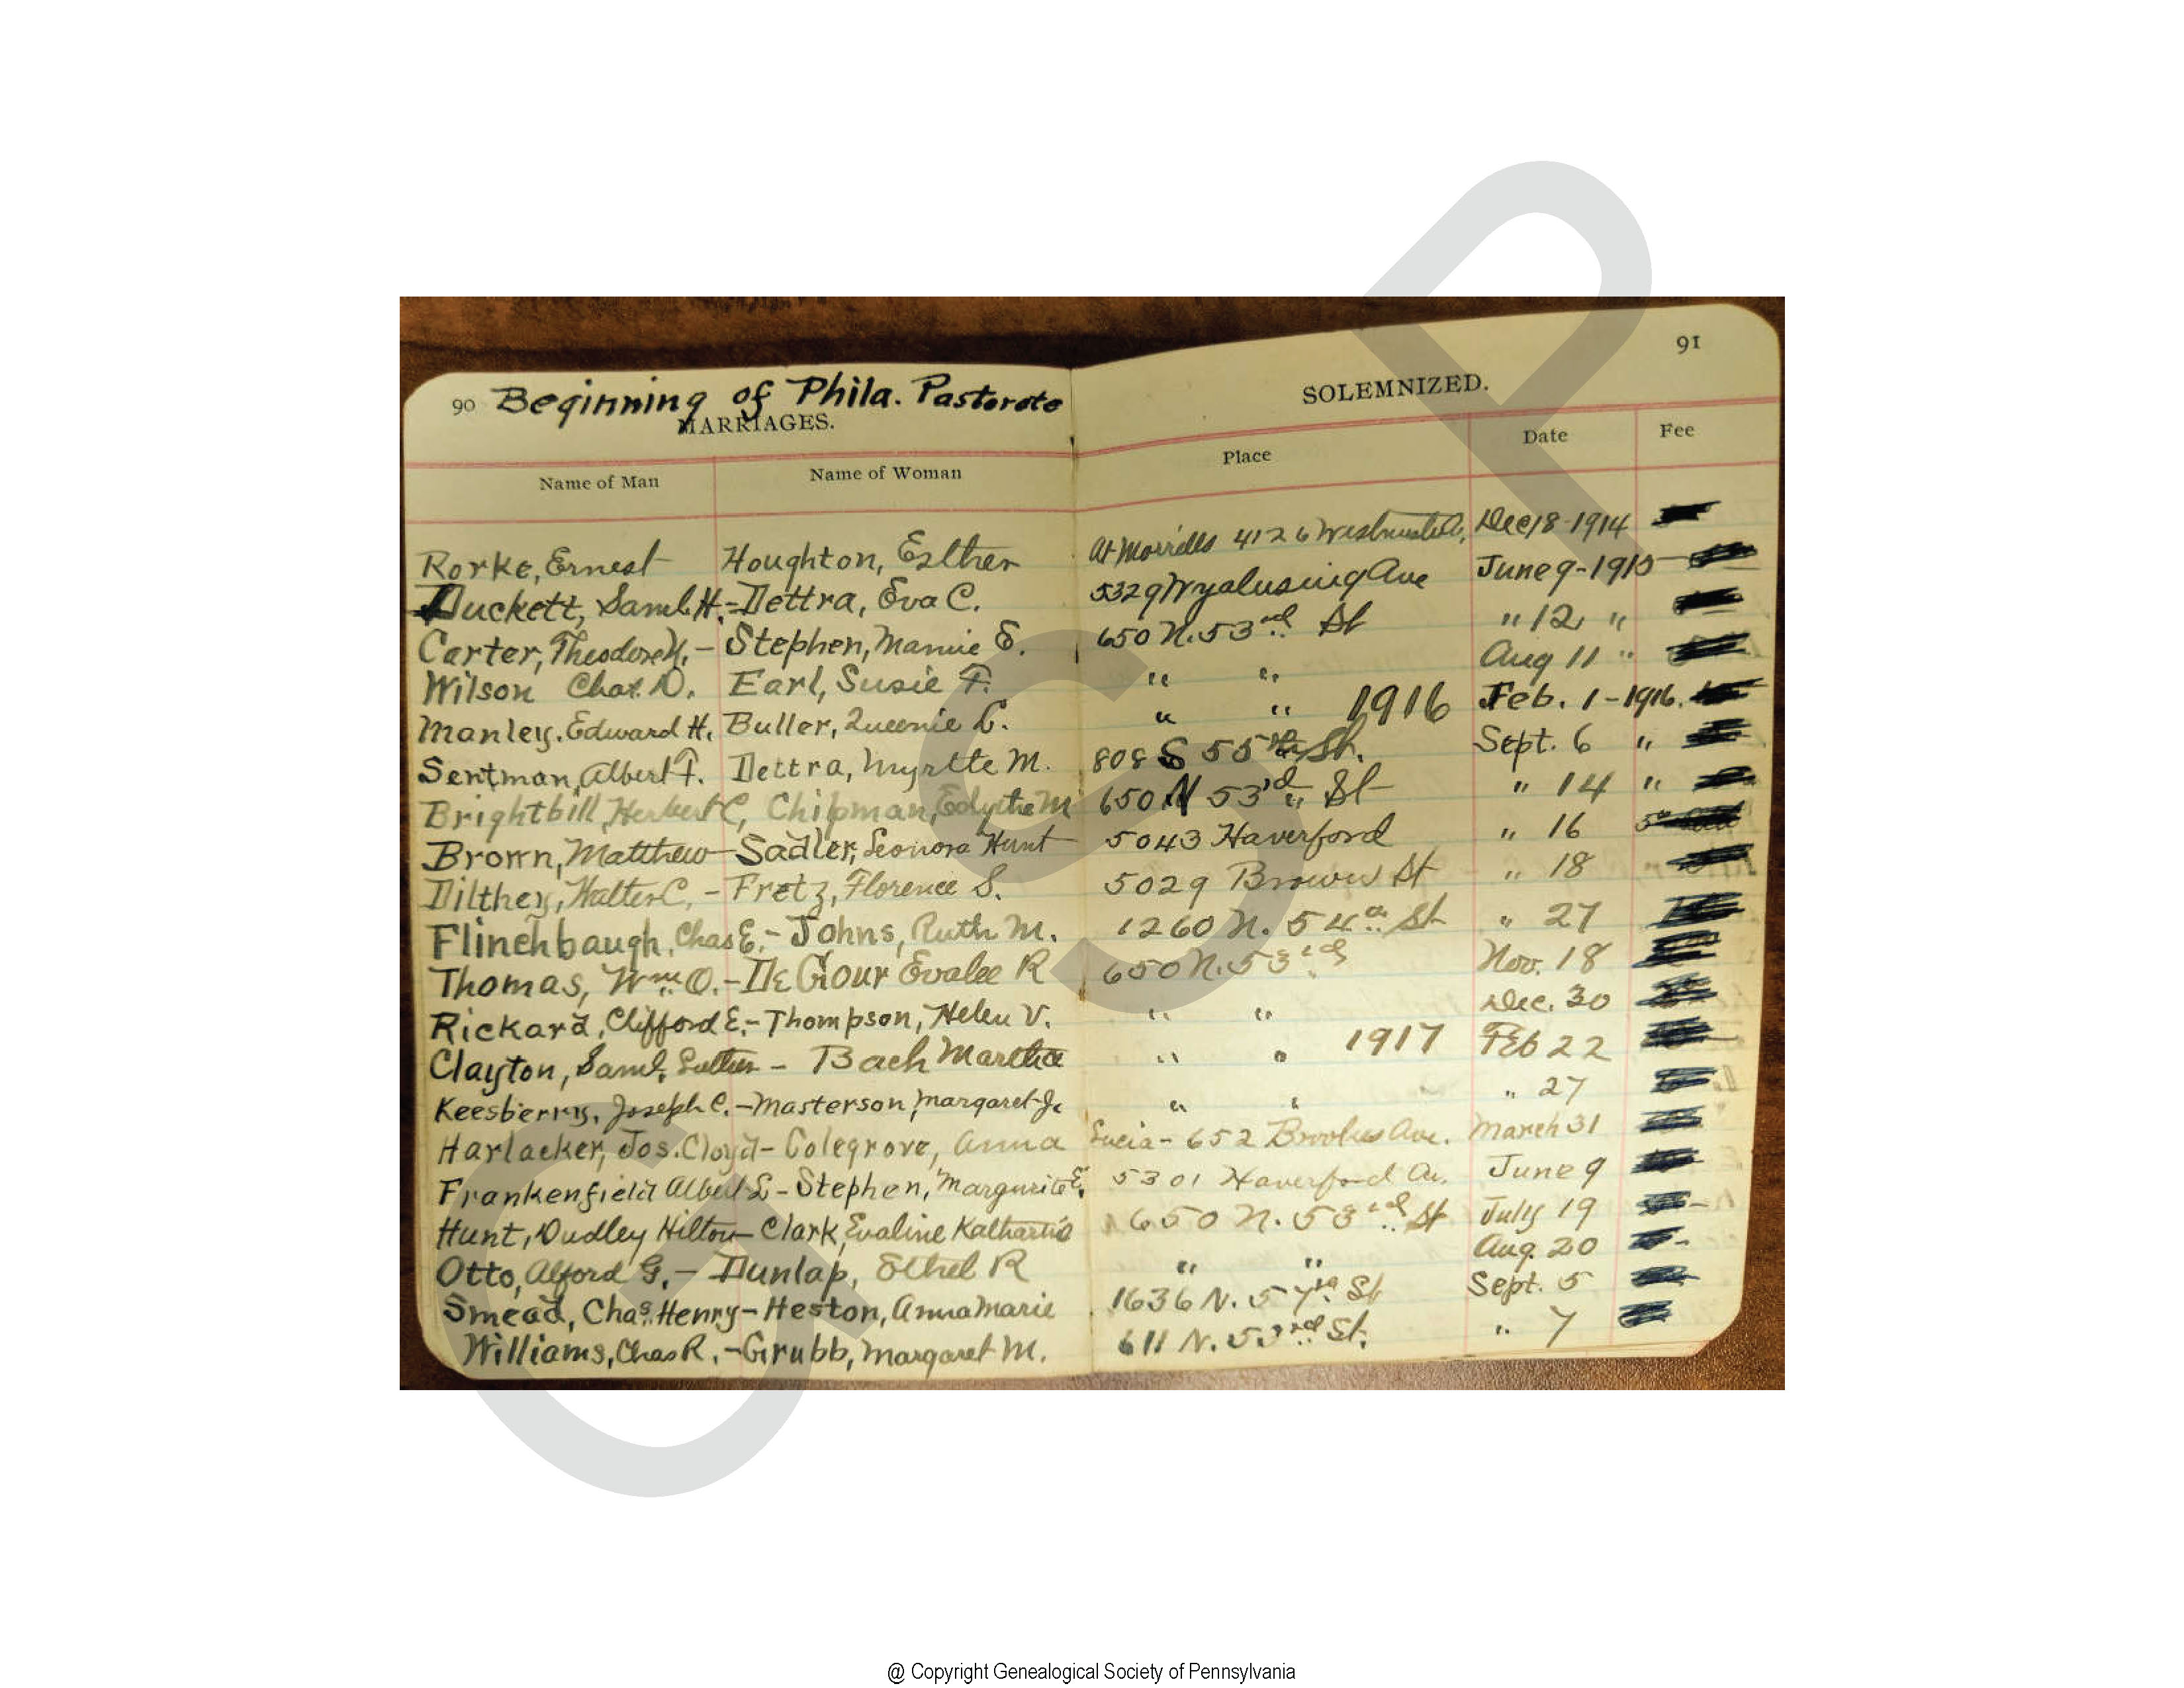 90 Beginning of Phila. Pastorate
MARRIAGES.
SOLEMNIZED.
91
Name of Man Name of Woman Place Date Fee
Rorke, Ernest Houghton, Esther At Morrells 4126 Dec 18-1914
Duckett, Saml. H. - Dettra, Eva C. 5329 Wyalusing Ave June 9-1915
Carter, Theodore H. - Stephen, Mamie E. 650 N. 53rd St " 12 "
Wilson Chas. D. Earl, Susie F. " " Aug 11 "
Manley, Edward H. Buller, Queenie L. " " 1916 Feb. 1-1916.
Sentman, Albert F. Dettra, Myrtle M. 808 S 55th St. Sept. 6 "
Brightbill, Herbert C, Chipman, Edythe M 650 N 53rd St " 14 "
Brown, Matthew - Sadler, Leonora Hunt 5043 Haverford " 16
Dilthey, Walter C. - Fretz, Florence S. 5029 Brown St " 18
Flinchbaugh, Chas E. - Johns, Ruth M. 1260 N. 54th St " 27
Thomas, Wm. O. - De Gour Evalee R 650 N. 53rd Nov. 18
Rickard, Clifford E. - Thompson, Helen V. " " Dec. 30
Clayton, Saml. Luther - Bach Martha " " 1917 Feb 22
Keesberry, Joseph C. - Masterson, Margaret J. " " " 27
Harlacker, Jos. Cloyd - Colegrove, Anna Lucia - 652 Brookes Ave. March 31
Frankenfield Albert L - Stephen, Margurite E. 5301 Haverford Av. June 9
Hunt, Dudley Hilton - Clark, Evaline Katharine 650 N. 53rd St July 19
Otto, Alford G. - Dunlap, Ethel R " " Aug. 20
Smead, Chas. Henry - Heston, Anna Marie 1636 N. 57th St Sept. 5
Williams, Chas R. - Grubb, Margaret M. 611 N. 53rd St. " 7
GSP
@ Copyright Genealogical Society of Pennsylvania